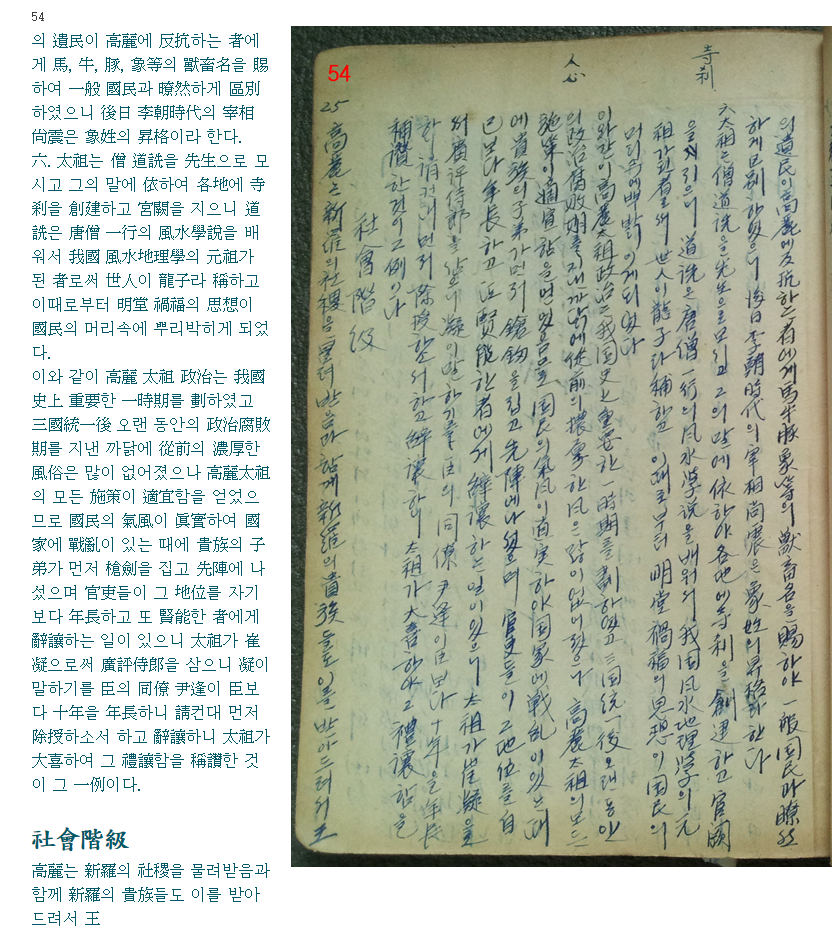 54
의 遺民이 高麗에 反抗하는 者에
게 馬, 牛, 豚, 象等의 獸畜名을 賜
하여 一般 國民과 瞭然하게 區別
하였으니 後日 李朝時代의 宰相
尙震은 象姓의 昇格이라 한다.
六. 太祖는 僧 道詵을 先生으로 모
시고 그의 말에 依하여 各地에 寺
刹을 創建하고 宮闕을 지으니 道
詵은 唐僧 一行의 風水學說을 배
워서 我國 風水地理學의 元祖가
된 者로써 世人이 龍子라 稱하고
이때로부터 明堂 禍福의 思想이
國民의 머리속에 뿌리박히게 되었
다.
이와 같이 高麗 太祖 政治는 我國
史上 重要한 一時期를 劃하였고
三國統一後 오랜 동안의 政治腐敗
期를 지낸 까닭에 從前의 濃厚한
風俗은 많이 없어졌으나 高麗太祖
의 모든 施策이 適宜함을 얻었으
므로 國民의 氣風이 眞實하여 國
家에 戰亂이 있는 때에 貴族의 子
弟가 먼저 槍劍을 집고 先陣에 나
섰으며 官吏들이 그 地位를 자기
보다 年長하고 또 賢能한 者에게
辭讓하는 일이 있으니 太祖가 崔
凝으로써 廣評侍郎을 삼으니 凝이
말하기를 臣의 同僚 尹逢이 臣보
다 十年을 年長하니 請컨대 먼저
除授하소서 하고 辭讓하니 太祖가
大喜하여 그 禮讓함을 稱讚한 것
이 그 一例이다.
社會階級
高麗는 新羅의 社稷을 물려받음과
함께 新羅의 貴族들도 이를 받아
드려서 王
54
寺刹
人心
의 遺民이 高麗에 反抗하는 者에게 馬牛豚象等의 獸畜名을 賜하야 一般 国民과 瞭然
하게 区別하였으니 後日 李朝時代의 宰相 尙震은 象姓의 昇格이라 한다
六 太祖는 僧 道詵을 先生으로 모시고 그의 말에 依하야 各地에 寺刹을 創建하고 宮闕
을 지으니 道詵은 唐僧 一行의 風水学說을 배워서 我国 風水地理学의 元
祖가 된 者로써 世人이 龍子라 稱하고 이때로부터 明堂 禍福의 思想이 国民의
머리속에 뿌리 박히게 되였다
이와 같이 高麗太祖 政治는 我国史上 重要한 一時期를 劃하였고 三国統一後 오랜동안
의 政治腐敗期를 지낸 까닭에 從前의 濃厚한 風은 많이 없어졌으나 高麗太祖의 모든
施策이 適宜함을 얻었음으로 国民의 氣風이 眞実하야 国家에 戰乱이 있는 때
에 貴族의 子弟가 먼저 鎗劍을 집고 先陣에 나섰으며 官吏들이 그 地位를 自
己보다 年長하고 또 賢能한 者에게 辭讓하는 일이 있으니 太祖가 崔凝을
써 廣評侍郎을 삼으니 凝이 말하기를 臣의 同僚 尹逢이 臣보다 十年을 年長
하니 請컨대 먼저 除授하소서 하고 辭讓하니 太祖가 大喜하야 그 禮讓함을
稱讚한 것이 그 例이다
社會階級
25 高麗는 新羅의 社稷을 물려받음과 함게 新羅의 貴族들도 이를 받아드려서 王